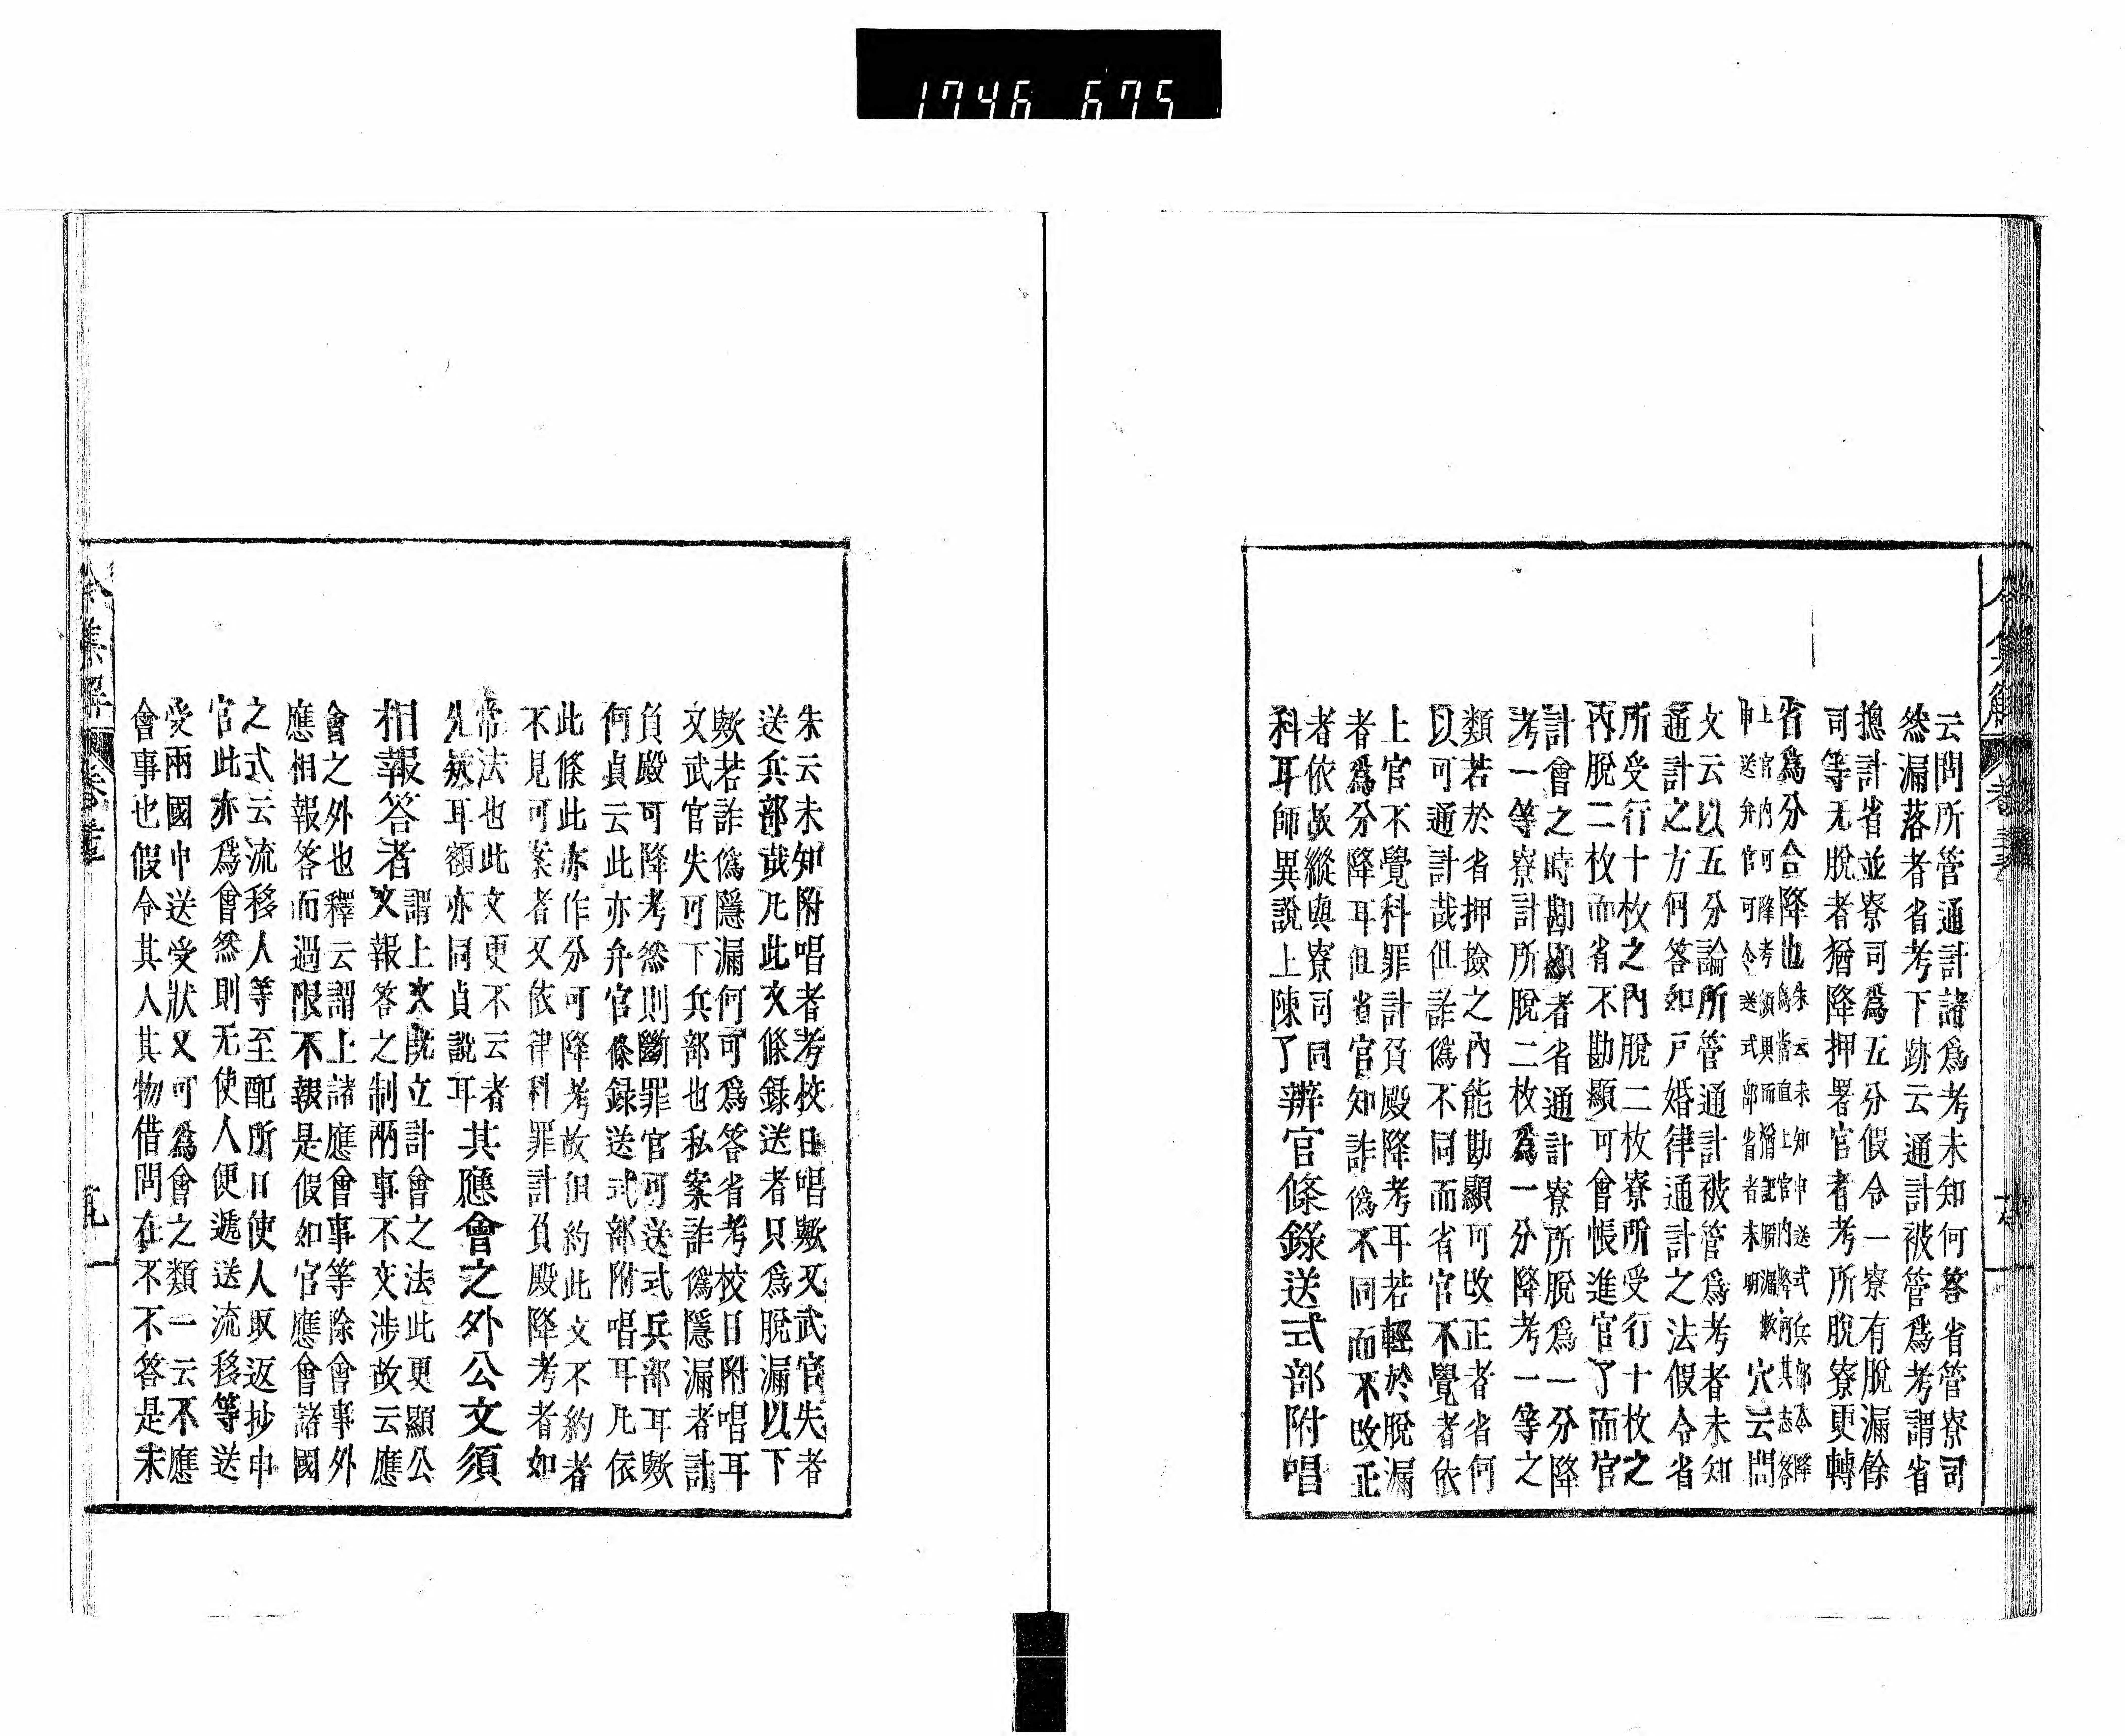 1746 675
云問所管通計諸為考未知何答省管寮司
然漏落者省考下跡云通計被管為考謂省
摠計省並寮司為五分假令一寮有脫漏餘
司等无脫者猶降押署官者考所脫寮更轉
省為分合降也
朱云未知申送式兵部令降
為當直上官內降何其志答
上官內可降考
申送弁官可令送式部省者未明
穴云問
文云以五分論所管通計被管為考者未知
通計之方何答如戸婚律通計之法假令省
所受行十枚之內脫二枚寮所受行十枚之
內脫二枚而省不勘顯可會帳進官了而官
計會之時勘顯者省通計寮所脫為一分降
考一等寮計所脫二枚為一分降考一等之
類若於省押撿之內能勘顯可改正者省何
以可通計哉但詐偽不同而省官不覺者依
上官不覺科罪計負殿降考耳若輕於脫漏
者為分降耳但省官知詐偽不同而不改正
者依故縱與寮司同
科耳師異說上陳了
辨官條錄送式部附唱
朱云未知附唱者考校日唱歟又武官失者
送兵部哉凡此文條錄送者只為脫漏以下
歟若詐偽隱漏何可為答省考校日附唱耳
文武官失可下兵部也私案詐偽隱漏者計
負殿可降考然則斷罪官可送式兵部耳歟
何貞云此亦弁官條錄送式部附唱耳凡依
此條此亦作分可降考故但約此文不約者
不見可案者又依律科罪計負殿降考者如
常法也此文更不云者
先欤耳額亦同貞說耳
其應會之外公文須
相報答者
謂上文既立計會之法此更顯公
文報答之制兩事不交涉故云應
會之外也釋云謂上諸應會事等除會事外
應相報答而過限不報是假如官應會諸國
之式云流移人等至配所日使人取返抄申
官此亦為會然則无使人便遞送流移等送
受兩國申送受狀又可為會之類一云不應
會事也假令其人其物借問在不不答是未